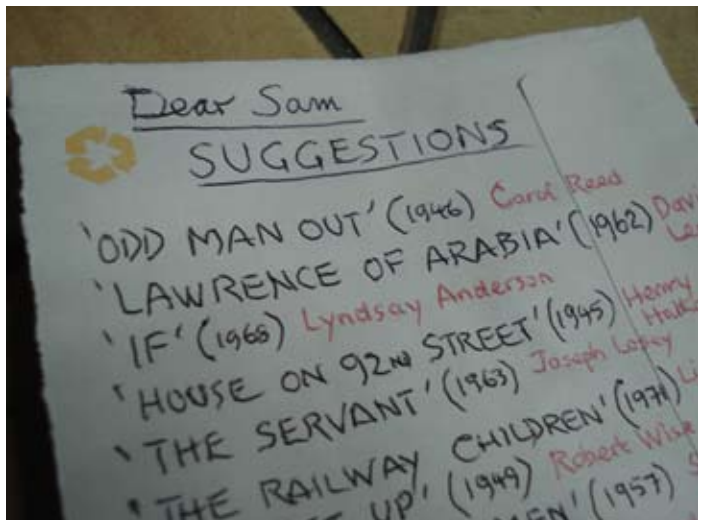 Dear Sam
SUGGESTIONS
'ODD MAN OUT' (1946) Carol Reed
'LAWRENCE OF ARABIA' (1962) Davi
'IF' (1968) Lyndsay Anderson
'HOUSE ON 92ND STREET' (1945) Henry
'THE SERVANT' (1963) Joseph Losey
'THE RAILWAY CHILDREN' (1971) Li
UP' (1949) Robert Wise
MEN' (1957)